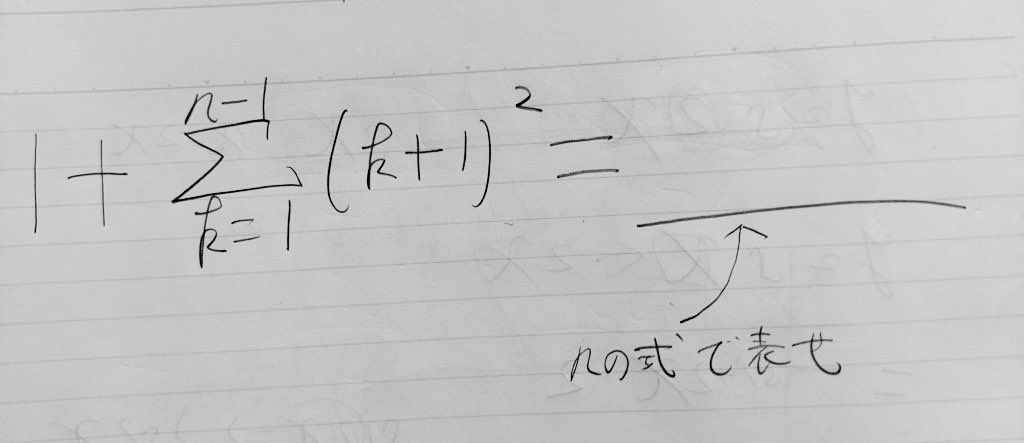 1 + \sum_{k=1}^{n-1} (k+1)^2 =
nの式で表せ